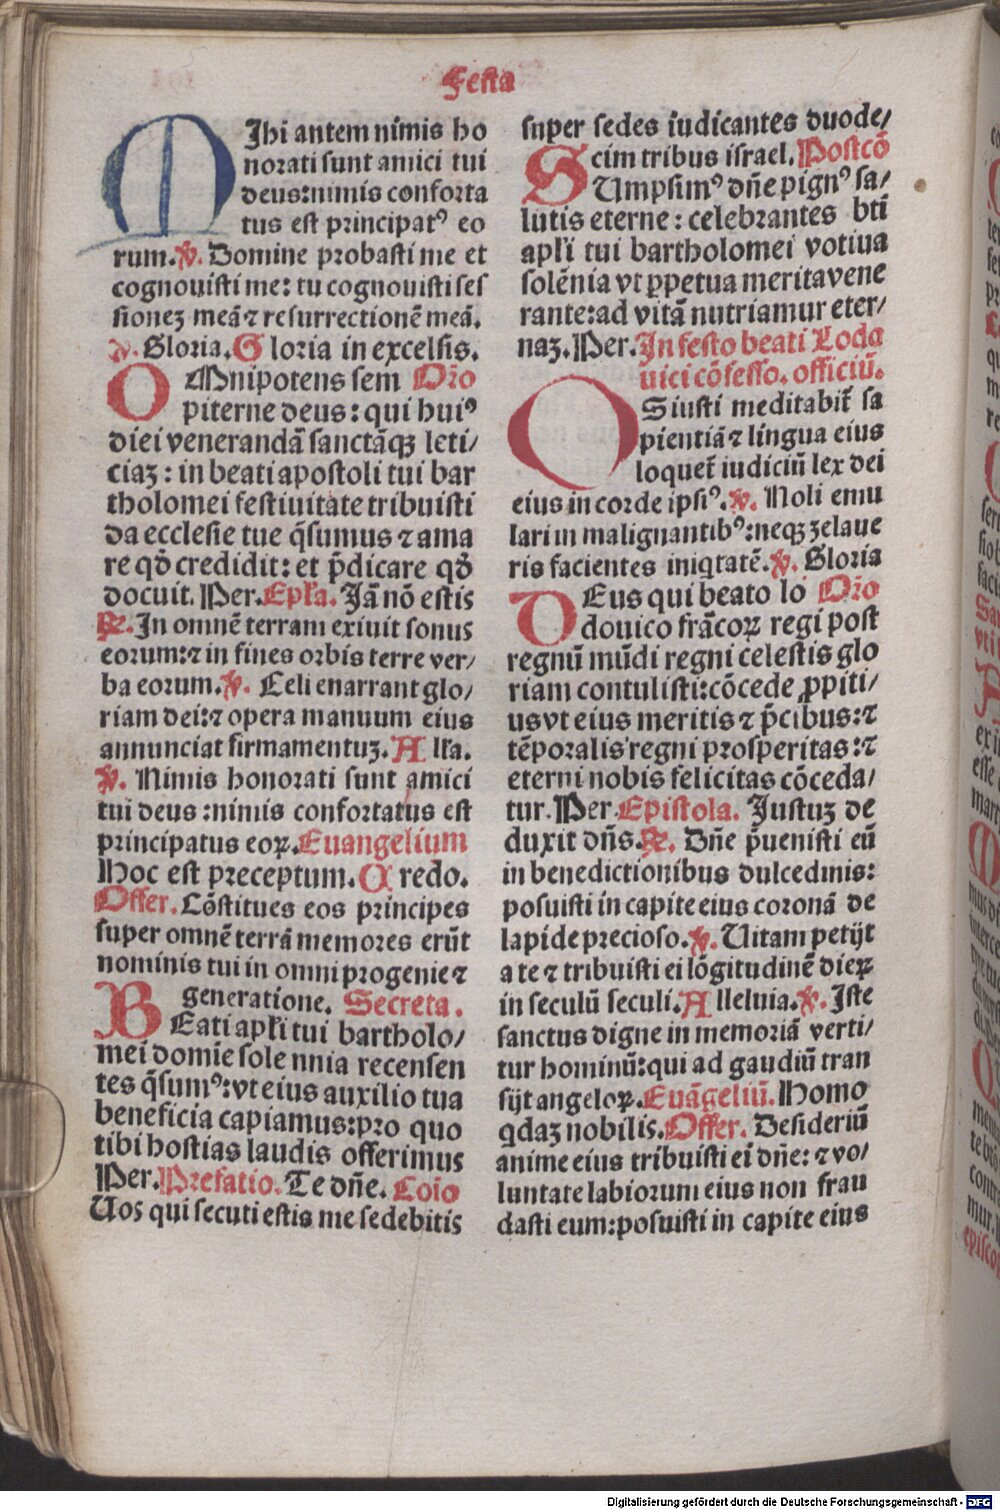 Festa
MIhi autem nimis ho
norati sunt amici tui
deus: nimis conforta
tus est principatꝰ eo
rum. ꝟ. Domine probasti me et
cognouisti me: tu cognouisti ses
sionez meā ⁊ resurrectionē meā.
ꝟ. Gloria. Gloria in excelsis.
OMnipotens sem Orō
piterne deus: qui huiꝰ
diei venerandā sanctāqꝫ leti/
ciaꝫ: in beati apostoli tui bar
tholomei festiuitate tribuisti
da ecclesie tue q̄sumus ⁊ ama
re qđ credidit: et p̄dicare qđ
docuit. Per. Epła. Jā nō estis
℞. In omnē terram exiuit sonus
eorum: ⁊ in fines orbis terre ver/
ba eorum. ꝟ. Celi enarrant glo/
riam dei: ⁊ opera manuum eius
annunciat firmamentuꝫ. Alła.
ꝟ. Nimis honorati sunt amici
tui deus: nimis confortatus est
principatus eoꝝ. Euangelium
Hoc est preceptum. Credo.
Offer. Cōstitues eos principes
super omnē terrā memores erūt
nominis tui in omni progenie ⁊
generatione. Secreta.
BEati apłi tui bartholo/
mei domīe sole nnia recensen
tes q̄sumꝰ: vt eius auxilio tua
beneficia capiamus: pro quo
tibi hostias laudis offerimus
Per. Prefatio. Te dn̄e. Coīo
Uos qui secuti estis me sedebitis
super sedes iudicantes duode/
cim tribus israel. Postcō
SUmpsimꝰ dn̄e pignꝰ sa/
lutis eterne: celebrantes bt̄i
apłi tui bartholomei votiua
solēnia vt ꝑpetua merita vene
rante: ad vitā nutriamur eter/
naꝫ. Per. In festo beati Lodo
uici cōfesso. officiū.
OS iusti meditabit̄ sa
pientiā ⁊ lingua eius
loquet̄ iudiciū lex dei
eius in corde ipsiꝰ. ꝟ. Noli emu
lari in malignantibꝰ: neqꝫ zelaue
ris facientes iniqtatē. ꝟ. Gloria
DEus qui beato lo Orō
douico frācoꝝ regi post
regnū mūdi regni celestis glo
riam contulisti: cōcede ꝓpiti/
us vt eius meritis ⁊ p̄cibus: ⁊
tēporalis regni prosperitas: ⁊
eterni nobis felicitas cōceda/
tur. Per. Epistola. Justuꝫ de
duxit dn̄s. ℞. Dn̄e p̄uenisti eū
in benedictionibus dulcedinis:
posuisti in capite eius coronā de
lapide precioso. ꝟ. Uitam petijt
a te ⁊ tribuisti ei lōgitudinē dieꝝ
in seculū seculi. Alleluia. ꝟ. Iste
sanctus digne in memoriā verti/
tur hominū: qui ad gaudiū tran
sijt angeloꝝ. Euāgeliū. Homo
qdaꝫ nobilis. Offer. Desideriū
anime eius tribuisti ei dn̄e: ⁊ vo/
luntate labiorum eius non frau
dasti eum: posuisti in capite eius
Digitalisierung gefördert durch die Deutsche Forschungsgemeinschaft - DFG